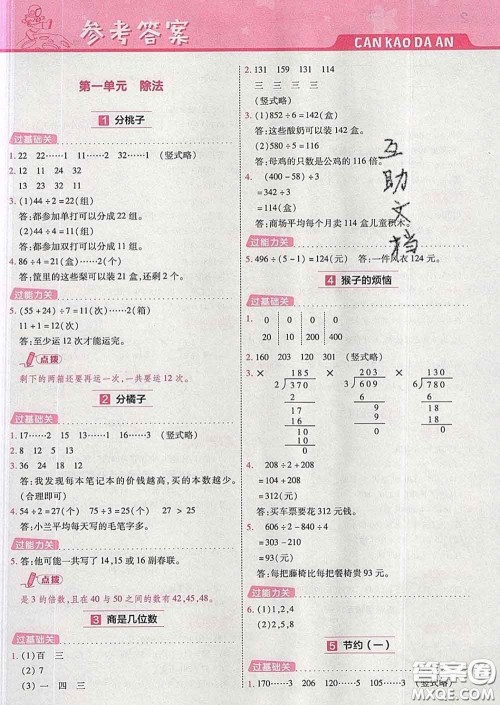 参考答案
CAN KAO DA AN
第一单元 除法
1 分桃子
过基础关
1. 22 22……1 11……1 (竖式略)
2. 12 11 24 32
13 23 32 31
3. (1)44÷2=22(组)
答:都参加单打可以分成 22 组。
(2)44÷4=11(组)
答:都参加双打可以分成 11 组。
4. 86÷4=21(筐)……2(个)
答:筐里的这些梨可以装 21 筐,还剩 2 个。
过能力关
5. (55+24)÷7=11(次)……2(箱)
11+1=12(次)
答:至少运 12 次才能运完。
点拨
剩下的两箱还要再运一次,一共要运 12 次。
2 分橘子
过基础关
1. 17……2 15……1 13 16……3 (竖式略)
2. 8 12 5 13
3. 36 24 18 12
答:我发现每本笔记本的价钱越高,买的本数越少。
(合理即可)
4. 54÷2=27(个) 75÷3=25(个) 27>25
答:小兰平均每天写的毛笔字多。
过能力关
5. 答:他可能一共写了 14,15 或 16 副春联。
点拨
是 3 的倍数,且在 40 与 50 之间的数有 42,45,48。
3 商是几位数
过基础关
1. (1)百 三
(2)7
(3)一 四 三
2. 131 159 131 114
三 三 三 三
(竖式略)
3. (1)852÷6=142(盒)
答:这些酸奶可以装 142 盒。
(2)580÷5=116
答:母鸡的只数是公鸡的 116 倍。
4. (400-58)÷3
=342÷3
=114(盒)
答:商场平均每个月卖 114 盒儿童积木。
过能力关
5. 496÷(5-1)=124(元) 答:一件风衣 124 元。
4 猴子的烦恼
过基础关
1. 0 0 0 0
200 20 140 400
2. 160 203 120 301 (竖式略)
3. × 185 × 203 × 130
2 370 3 609 6 780
2 6 6
17 9 18
16 9 18
10 0 0
10
0
4. 208÷2+208
=104+208
=312(元)
答:买车票要花 312 元钱。
5. 606÷2-840÷4
=303-210
=93(元)
答:每把藤椅比每把餐椅贵 93 元。
过能力关
6. (1)1,2,4
(2)1,2,4,8
5 节约(一)
过基础关
1. 170……3 206 120……5 105……3 (竖式略)
互助文档
答案圈
MXQE.COM